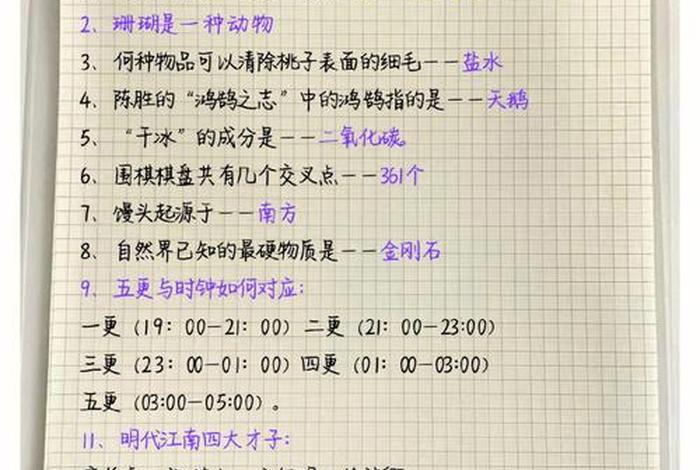 2、珊瑚是一种动物
3、何种物品可以清除桃子表面的细毛——盐水
4、陈胜的“鸿鹄之志”中的鸿鹄指的是——天鹅
5、“干冰”的成分是——二氧化碳。
6、围棋棋盘共有几个交叉点——361个
7、馒头起源于——南方
8、自然界已知的最硬物质是——金刚石
9、五更与时钟如何对应:
一更(19:00-21:00)二更(21:00-23:00)
三更(23:00-01:00)四更(01:00-03:00)
五更(03:00-05:00)。
11、明代江南四大才子: